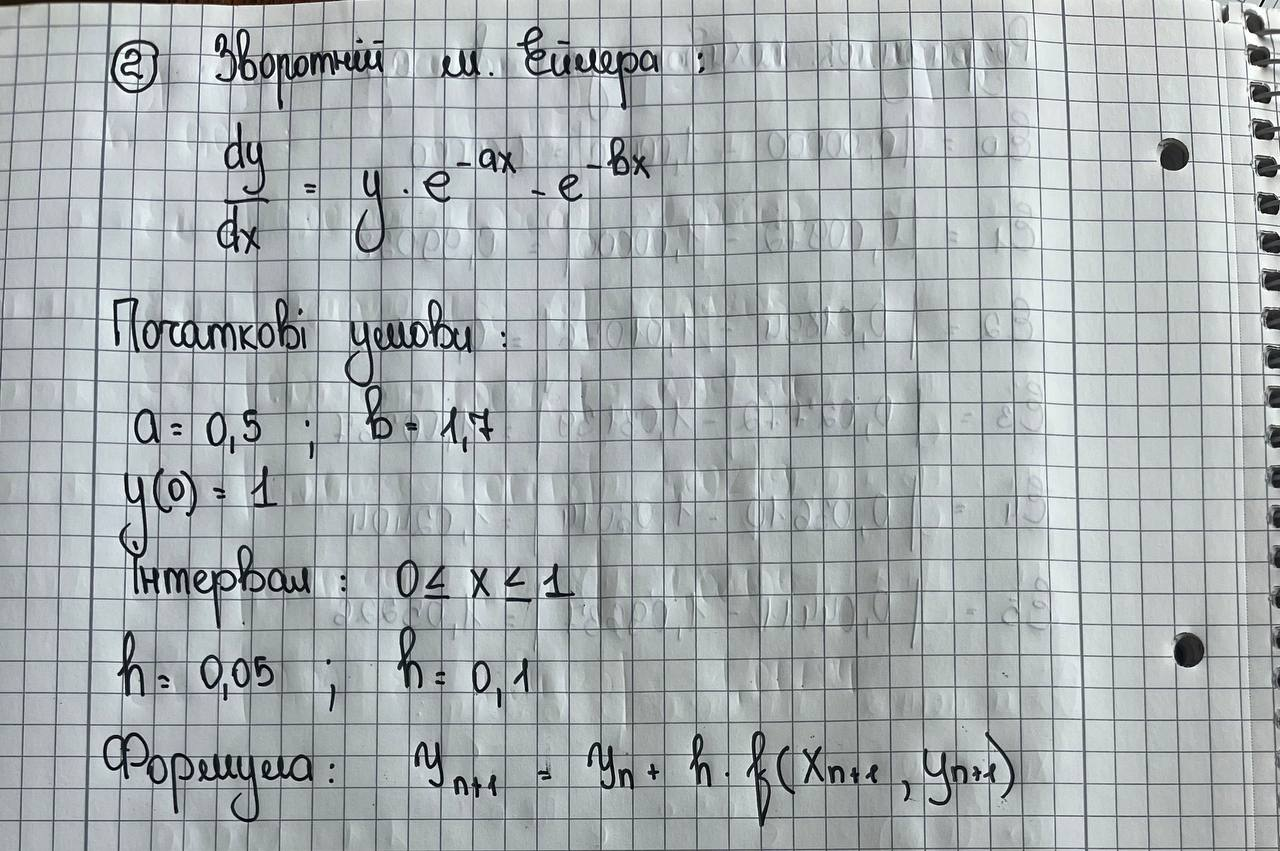 ② Зворотній м. Ейлера :
dy/dx = y · e^(-ax) - e^(-bx)
Початкові умови :
a = 0,5 ; b = 1,7
y(0) = 1
Інтервал : 0 ≤ x ≤ 1
h = 0,05 ; h = 0,1
Формула : y_(n+1) = y_n + h · f(x_(n+1) , y_(n+1))